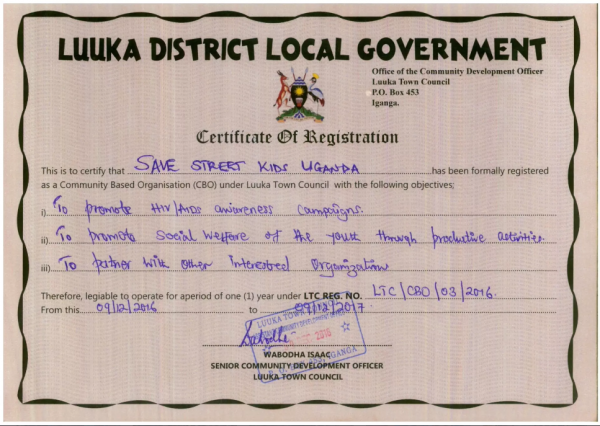 LUUKA DISTRICT LOCAL GOVERNMENT
Office of the Community Development Officer
Luuka Town Council
P.O. Box 453
Iganga.
Certificate Of Registration
This is to certify that SAVE STREET KIDS UGANDA has been formally registered
as a Community Based Organisation (CBO) under Luuka Town Council with the following objectives;
i) To promote HIV/AIDS awareness campaigns.
ii) To promote social welfare of the youth through productive activities.
iii) To partner with other interested organizations
Therefore, legiable to operate for aperiod of one (1) year under LTC REG. NO. LTC/CBO/03/2016.
From this 09/12/2016 to 09/12/2017.
LUUKA TOWN
2016
IGANGA
WABODHA ISAAC
SENIOR COMMUNITY DEVELOPMENT OFFICER
LUUKA TOWN COUNCIL